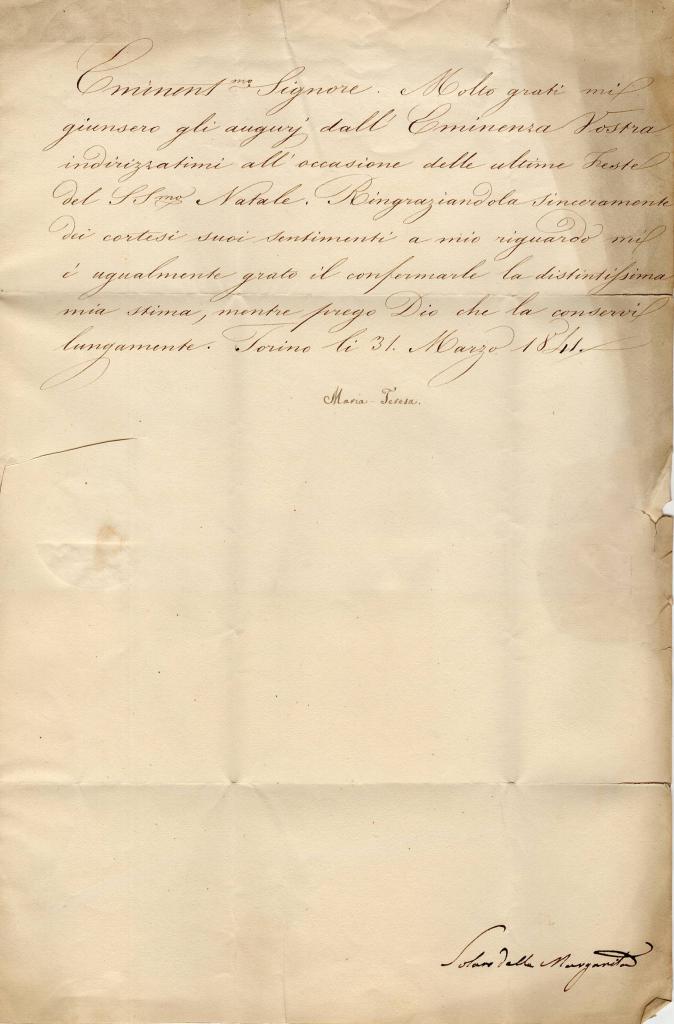 Eminent.mo Signore. Molto grati mi
giunsero gli augurj dall' Eminenza Vostra
indirizzatimi all' occasione delle ultime Feste
del SSmo Natale. Ringraziandola sinceramente
dei cortesi suoi sentimenti a mio riguardo mi
è ugualmente grato il confermarle la distintissima
mia stima, mentre prego Dio che la conservi
lungamente. Torino li 31. Marzo 1841.
Maria-Teresa.
Solaro della Margarita